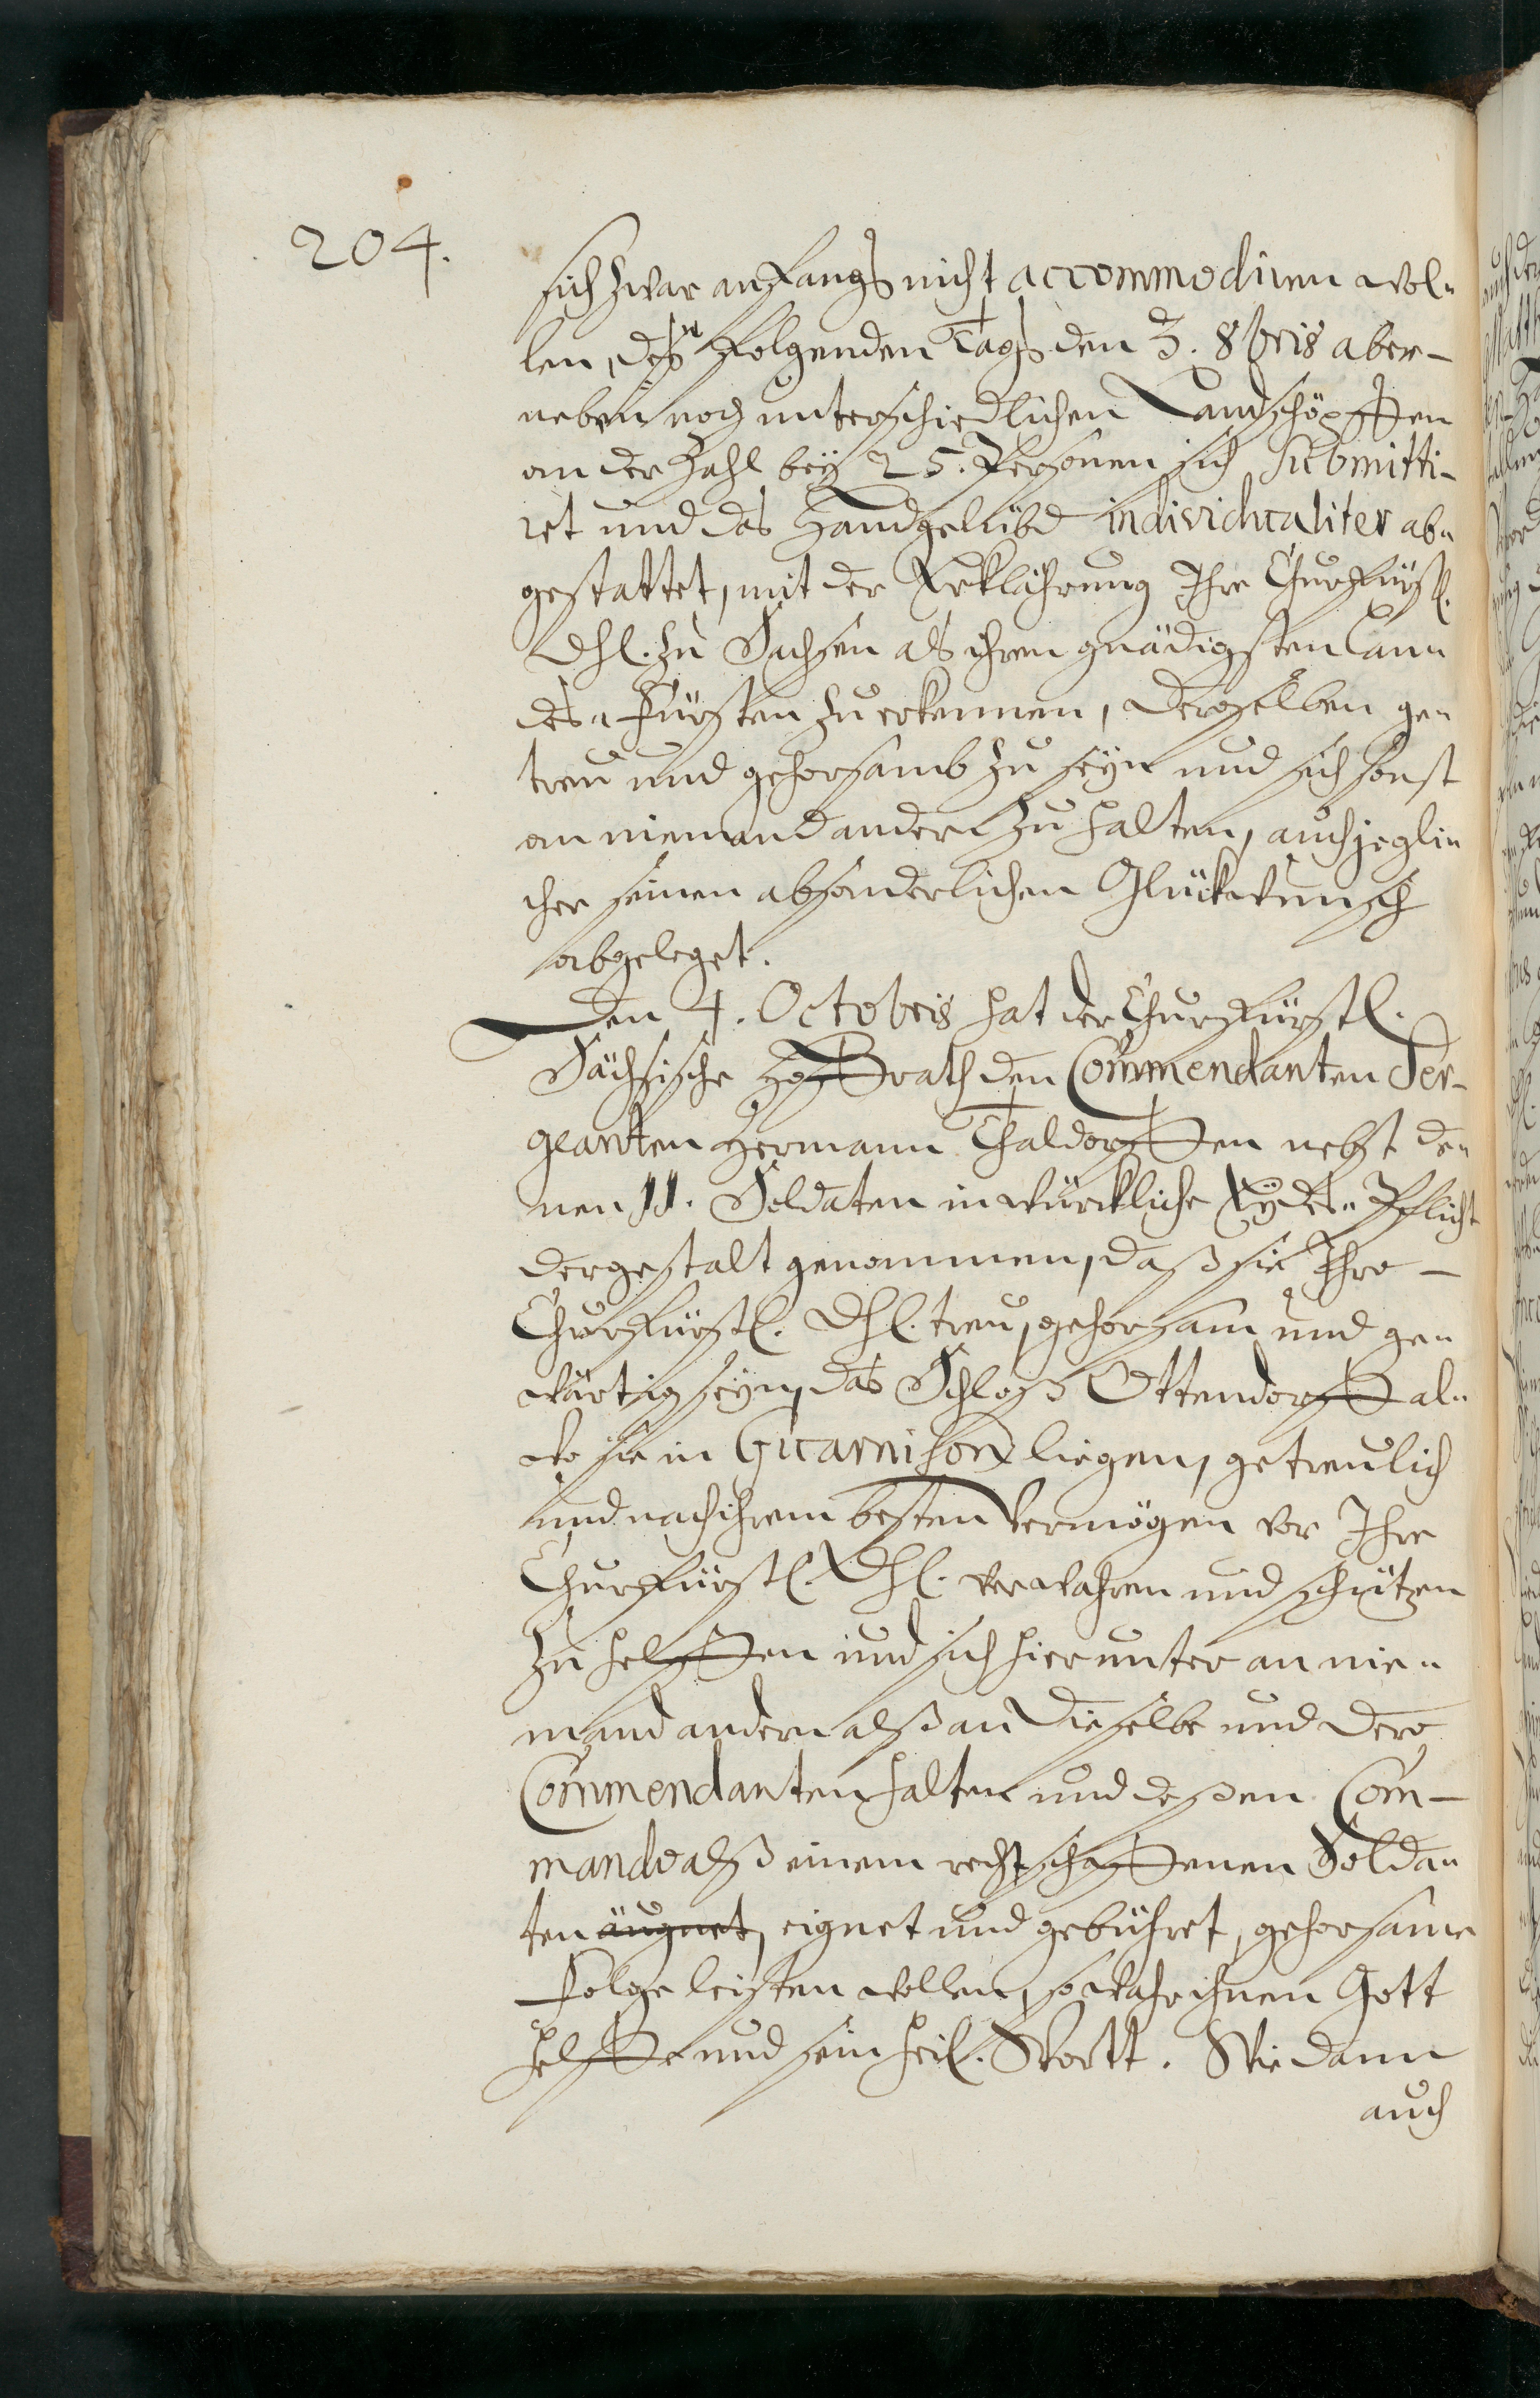 204.
sich zwar anfangs nicht accommodiren wol„
len, des folgenden Tags den 3. 8bris aber–
neben noch unterschiedlichen Landschöpffen
an der Zahl bey 25. Personen sich submitti–
ret und das Handgelübd individualiter ab„
gestattet, mit der Erklährung Ihre Churfürstl.
Dhl. zu Sachsen als ihren gnädigsten Lan„
des„Fürsten zu erkennen, Deroselben ge„
treu und gehorsamb zu seyn und sich sonst
an niemand andern zu halten, auch jegli„
cher seinen absonderlichen Glückwunsch
abgeleget.
Den 4. Octobris hat der Churfürstl.
Sächsische Hoffrath den Commendanten Ser–
geanten Hermann Thaldorffen nebst de„
nen 11. Soldaten in würckliche Eydes„Pflicht
dergestalt genommen, daß sie Ihro–
Churfürstl. Dhl. treu, gehorsam und ge„
wärtig seyn, das Schloß Ottendorff al„
wo sie in Guarnison liegen, getreulich
und nach ihrem besten Vermögen vor Ihre
Churfürstl. Dhl. verwahren und schützen
zu helffen und sich hierunter an nie„
mand andern alß an Dieselbe und Dero
Commendanten halten und deßen Com–
mando alß einem rechtschaffenen Solda„
ten äugnet, eignet und gebühret, gehorsame
Folge leisten wollen, so wahr ihnen Gott
helffe und sein heil. Wortt. Wie dann
auch